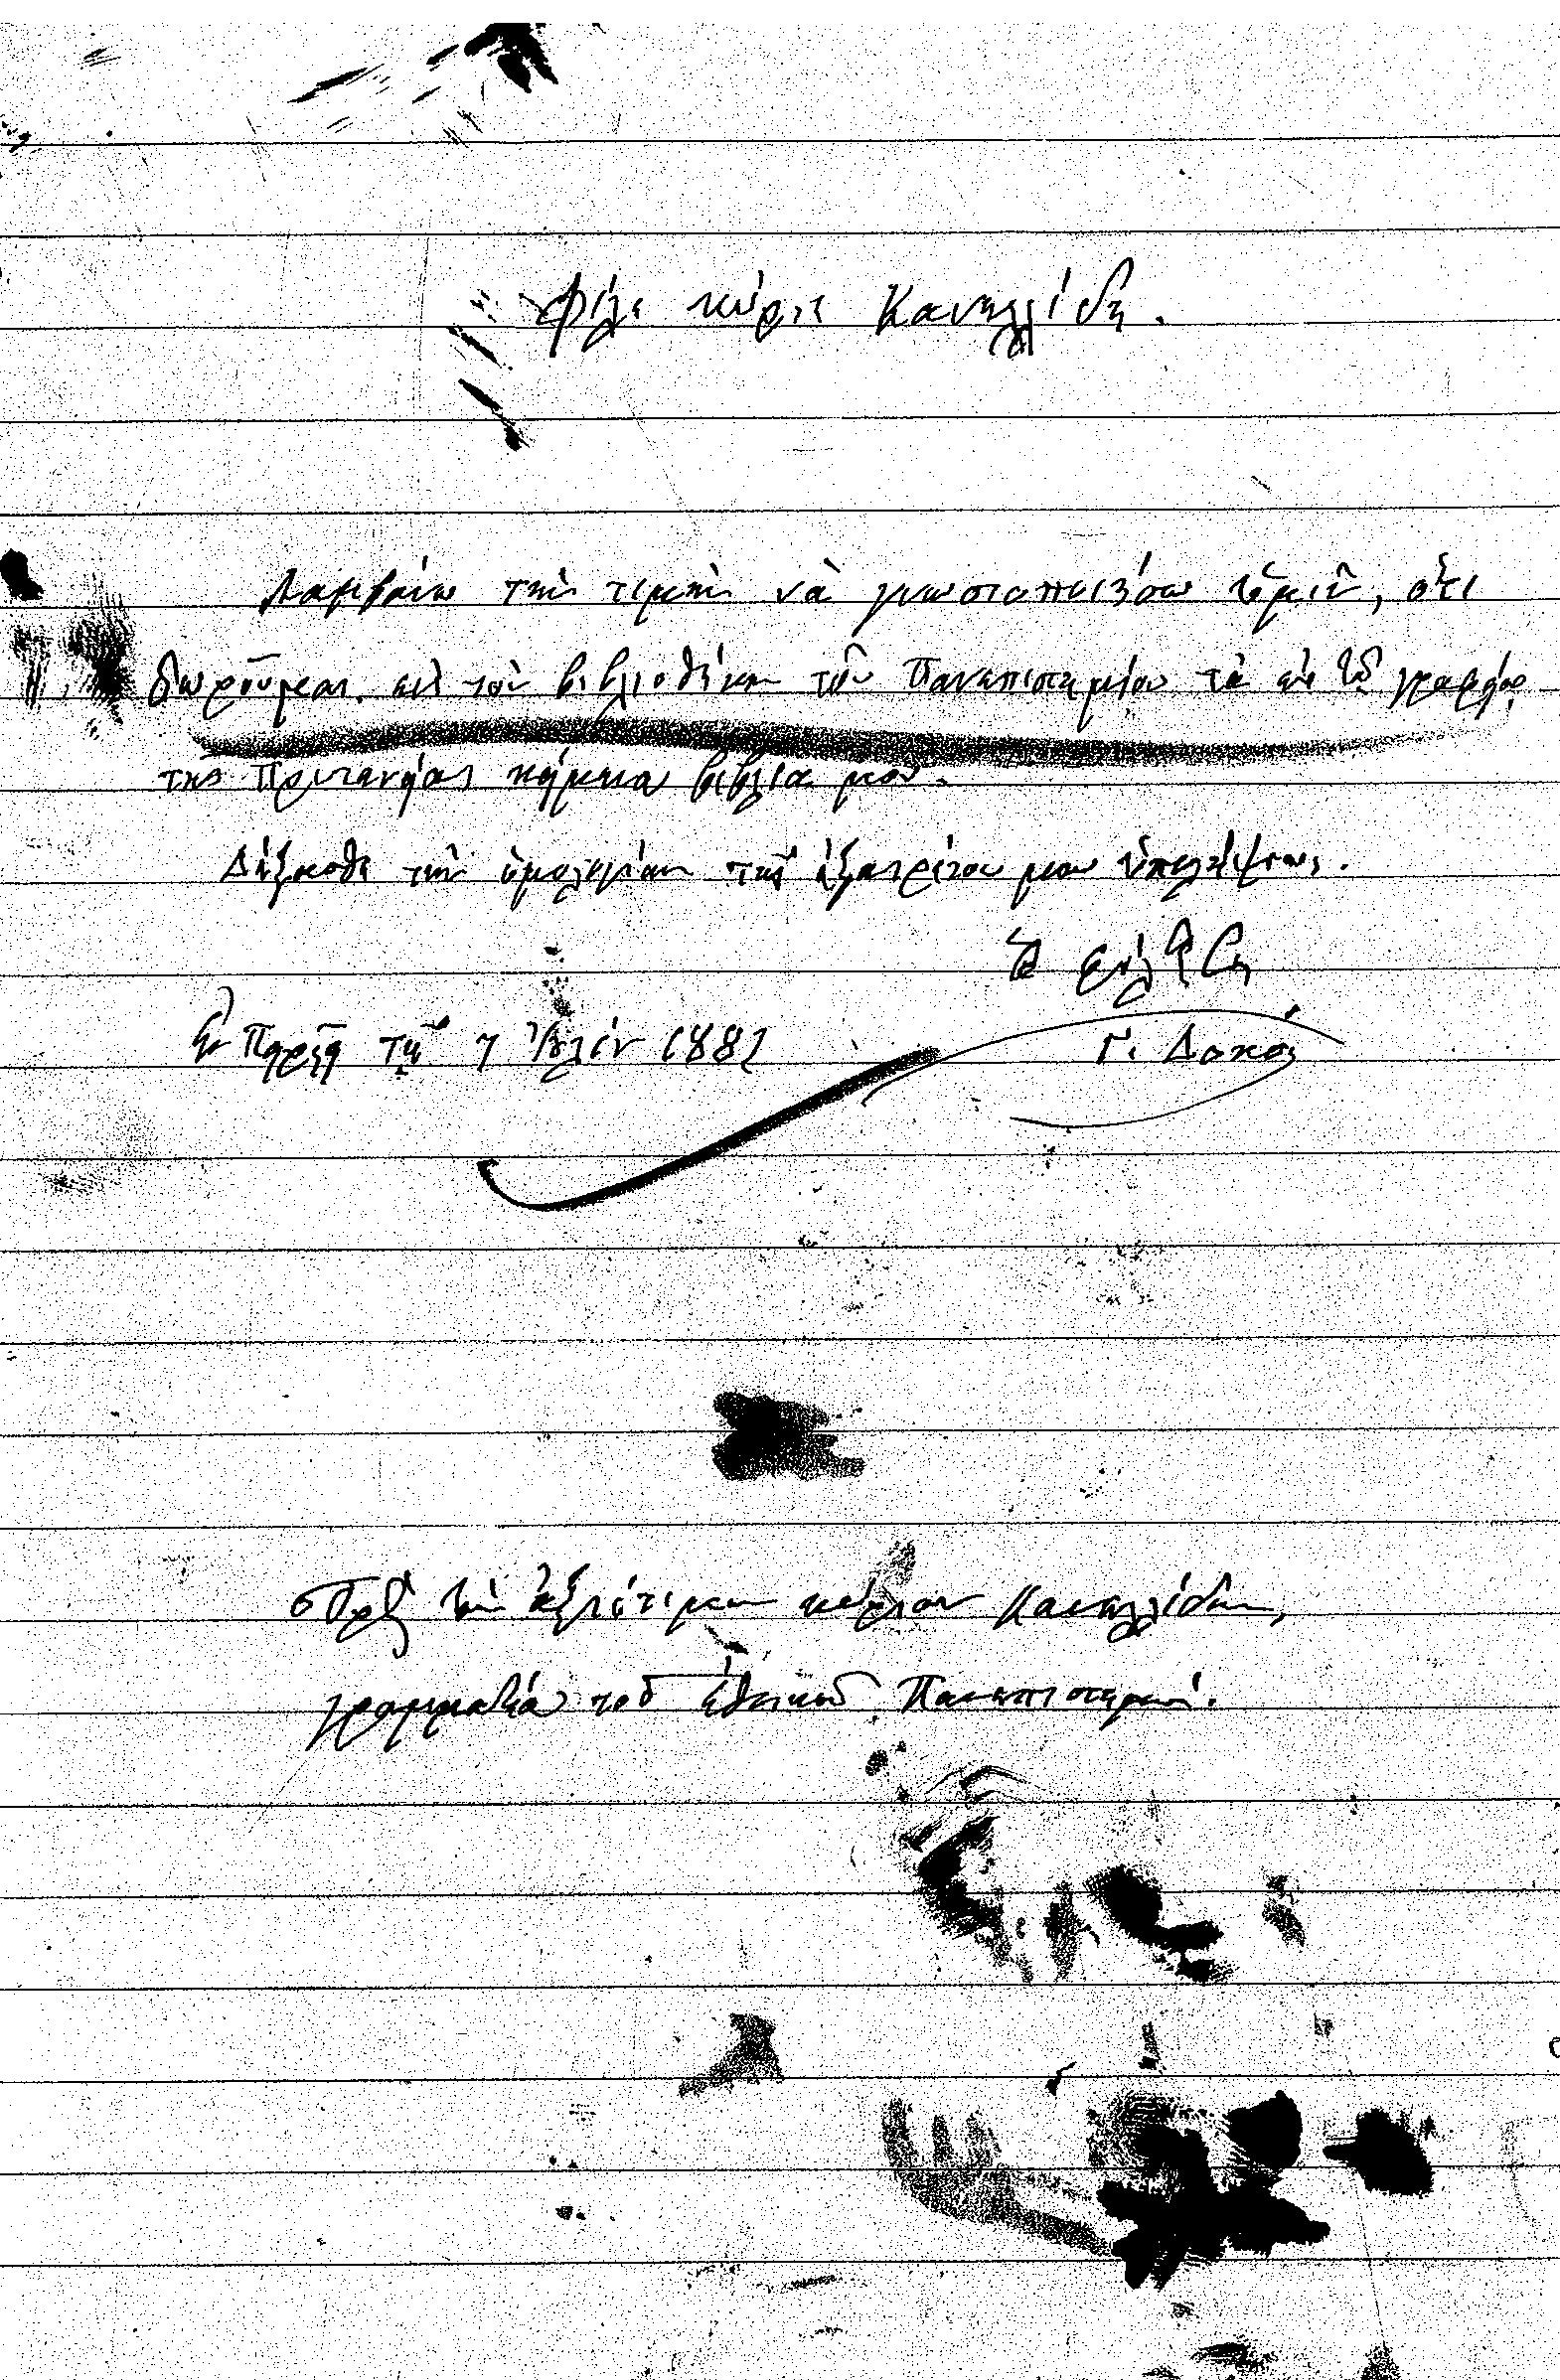 Φίλε κύριε Κανελλίδη.
Λαμβάνω τὴν τιμὴν νὰ γνωστοποιήσω ὑμῖν, ὅτι
δωροῦμαι εἰς τὴν βιβλιοθήκην τοῦ Πανεπιστημίου τὰ ἐν τῷ γραφείῳ
τῆς Πρυτανείας κείμενα βιβλία μου.
Δέξασθε τὴν ὁμολογίαν τῆς ἐξαιρέτου μου ὑπολήψεως.
Ὁ
τῇ 7 1882
Γ. Δοκός
Πρὸς τὸν ἀξιότιμον κύριον Κανελλίδην,
γραμματέα τοῦ ἐθνικοῦ Πανεπιστημίου.